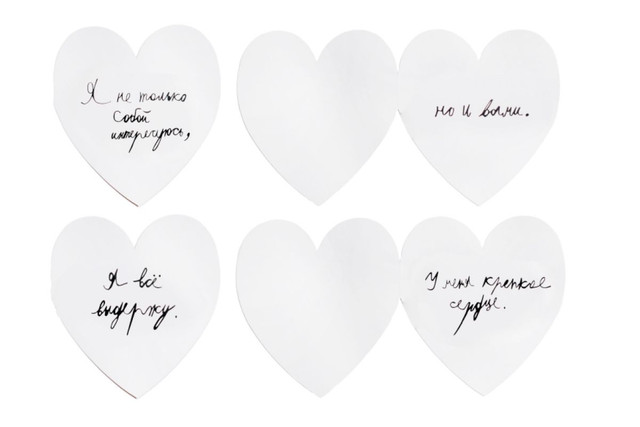 Я не только
собой
интересуюсь,
но и вами.
Я всё
выдержу.
У меня крепкое
сердце.